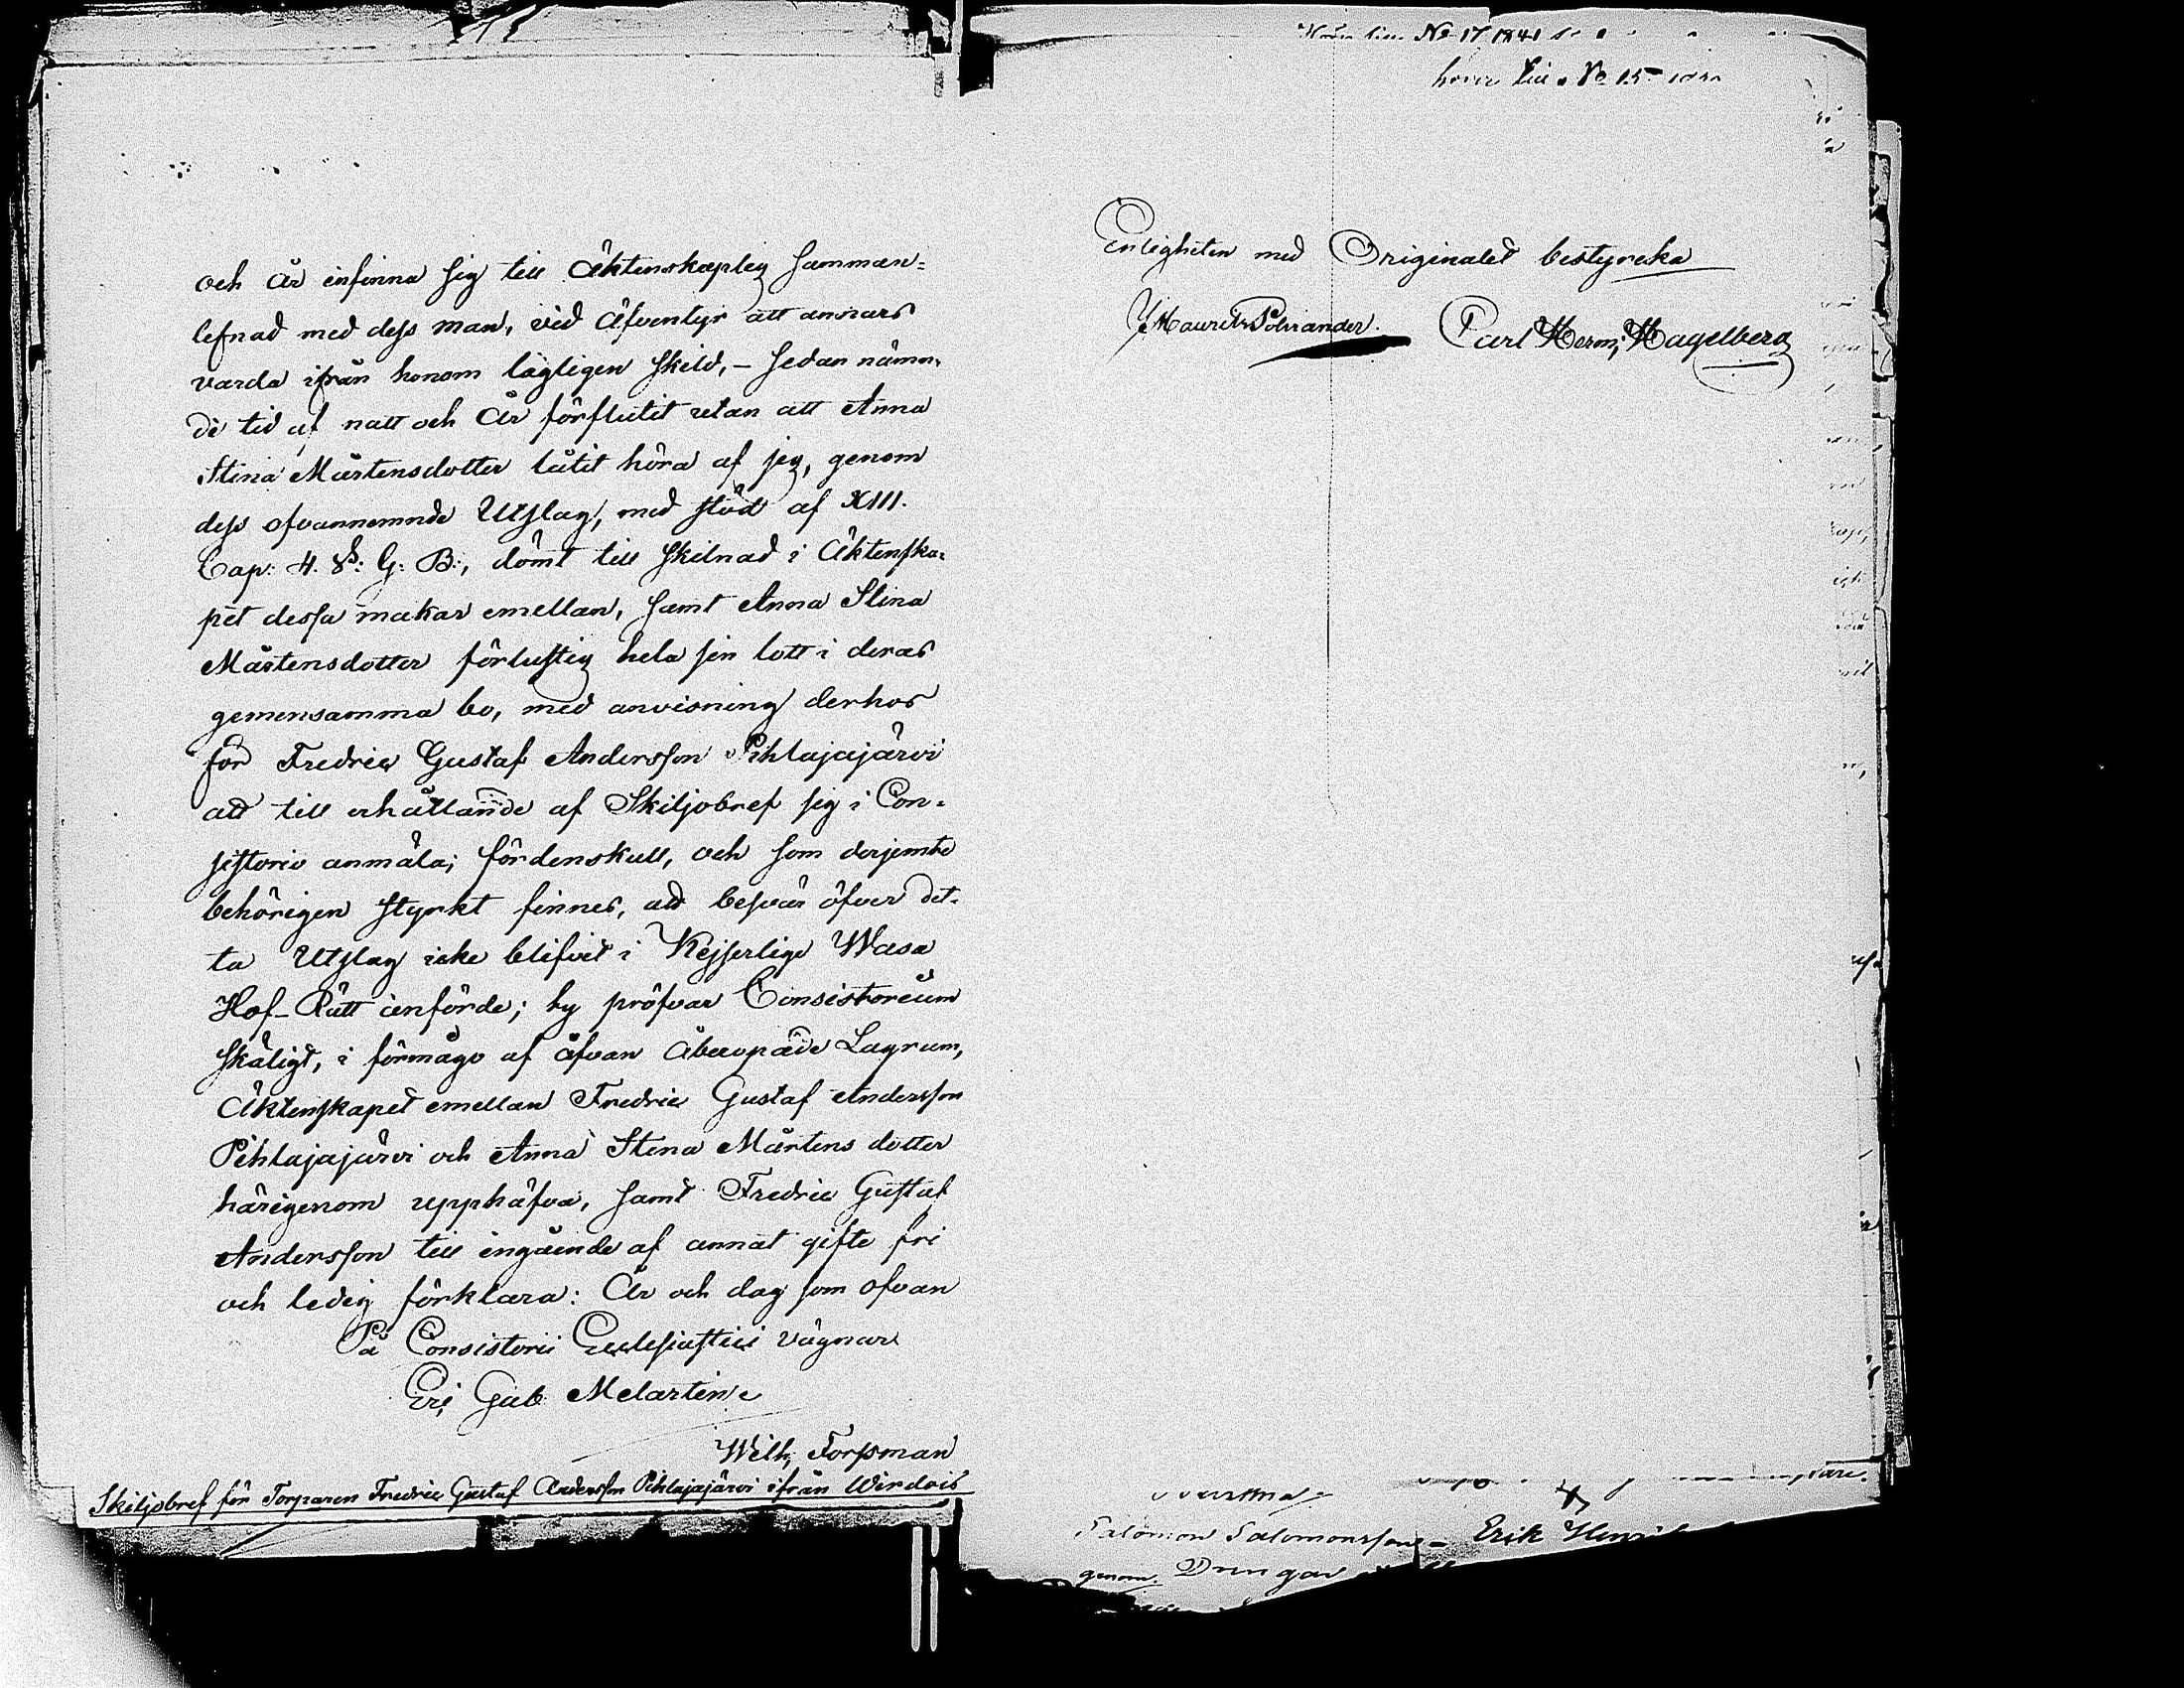 och År infinna sig till Äktenskaplig samman-
lefnad med dess man, vid äfventyr att annars
varda ifrån honom lagligen skild, - sedan nämn-
de tid af natt och År förflutit utan att Anna
Stina Mårtensdotter låtit höra af sig, genom
dess ofvannemnde Utslag, med stöd af XIII.
Cap: 4. §: G: B:, dömt till skilnad i Äktenska-
pet dessa makar emellan, samt Anna Stina
Mårtensdotter förlustig hela sin lott i deras
gemensamma bo, med anvisning derhos
för Fredric Gustaf Andersson Pihlajajärvi
att till erhållande af Skiljobref sig i Con-
sistorio anmäla; fördenskull, och som derjemte
behörigen styrkt finnes, att besvär öfver det-
ta Utslag icke blifvit i Kejserliga Wasa
Hof-Rätt införde; ty pröfvar Consistorium
skäligt, i förmågo af åfvan åberopade Lagrum,
Äktenskapet emellan Fredric Gustaf Andersson
Pihlajajärvi och Anna Stina Mårtens dotter
härigenom upphäfva, samt Fredric Gustaf
Andersson till ingående af annat gifte fri
och ledig förklara: År och dag som ofvan
På Consistorii Ecclesiastici vägnar
Eri; Gab. Melartin
Wilh; Forssman
Skiljobref för Torparen Fredric Gustaf Andersson Pihlajajärvi ifrån Wirdois
No 17 1841
No 15
Enligheten med Originalet bestyrcka
Maurit Polviander. Carl Herm; Hagelberg
Salomon Salomonsson - Erik
genom. Drengar